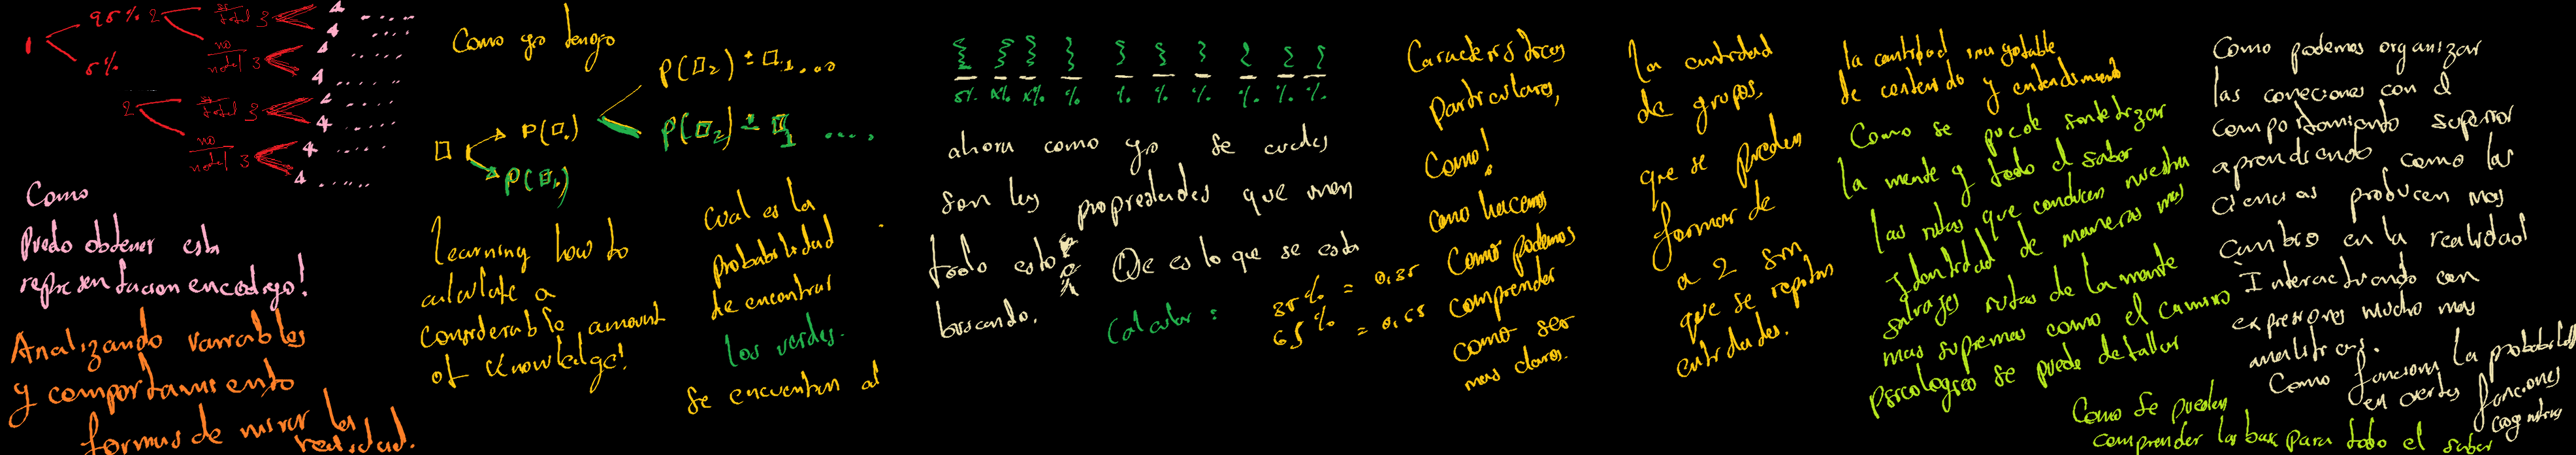 1
95% 2
5%
no
model 3
2
no
model 3
4 .....
4 .....
4 .....
4 .....
4 .....
4 .....
4 .....
4 .....
Como
puedo obtener esta
representacion en codigo!
Analizando variables
y comportamiento
formas de mirar la
realidad.
Como yo tengo
P(□2) ± □1 ....
□ P(□1)
P(□2) ± □1 ....
P(□1)
learning how to
calculate a
considerable amount
of knowledge!
Cual es la
probabilidad
de encontrar
los verdes.
Se encuentran al
5% x% x% % % % % % % %
ahora como yo se cuales
son las propiedades que unen
todo esto Que es lo que se esta
buscando.
Calcular:
35% = 0.35
65% = 0.65
Caracteristicas
particulares,
Como!
como hacemos
Como podemos
comprender
como ser
mas claros.
la cantidad
de grupos.
que se pueden
formar de
a 2 son
que se repitan
entidades.
la cantidad inagotable
de contenido y entendimiento
Como se puede sintetizar
la mente y todo el saber
las rutas que conducen nuestra
Identidad de maneras mas
salvajes rutas de la mente
mas supremas como el camino
psicologico se puede detallar
Como podemos organizar
las conecciones con el
comportamiento superior
aprendiendo como las
ciencias producen mas
cambio en la realidad
Interactuando con
expresiones mucho mas
analiticas.
Como funciona la probabilidad
en ciertas funciones
cognitivas
Como se pueden
comprender las base para todo el saber